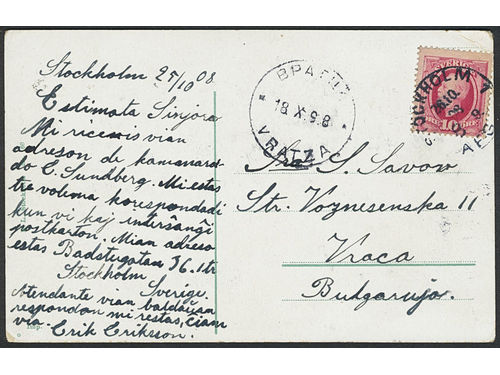 Stockholm 25/10 08
Estimata Sinjoro
Mi ricevis vian
adreson de kamarado
C. Sundberg. Mi estas
tre volema korespondadi
kun vi kaj interŝanĝi
postkarton. Mian adreso
estas Badstugatan 36. 1 tr
Stockholm
Sverige.
Atendante vian baldaŭan
respondon mi restas, ĉiam
via. Erik Eriksson.
ВРАЦА
18 X 98
VRATZA
SVERIGE
STOCKHOLM 1
10
S. Savow
Str. Voznesenska 11
Vraca
Bulgarujo.